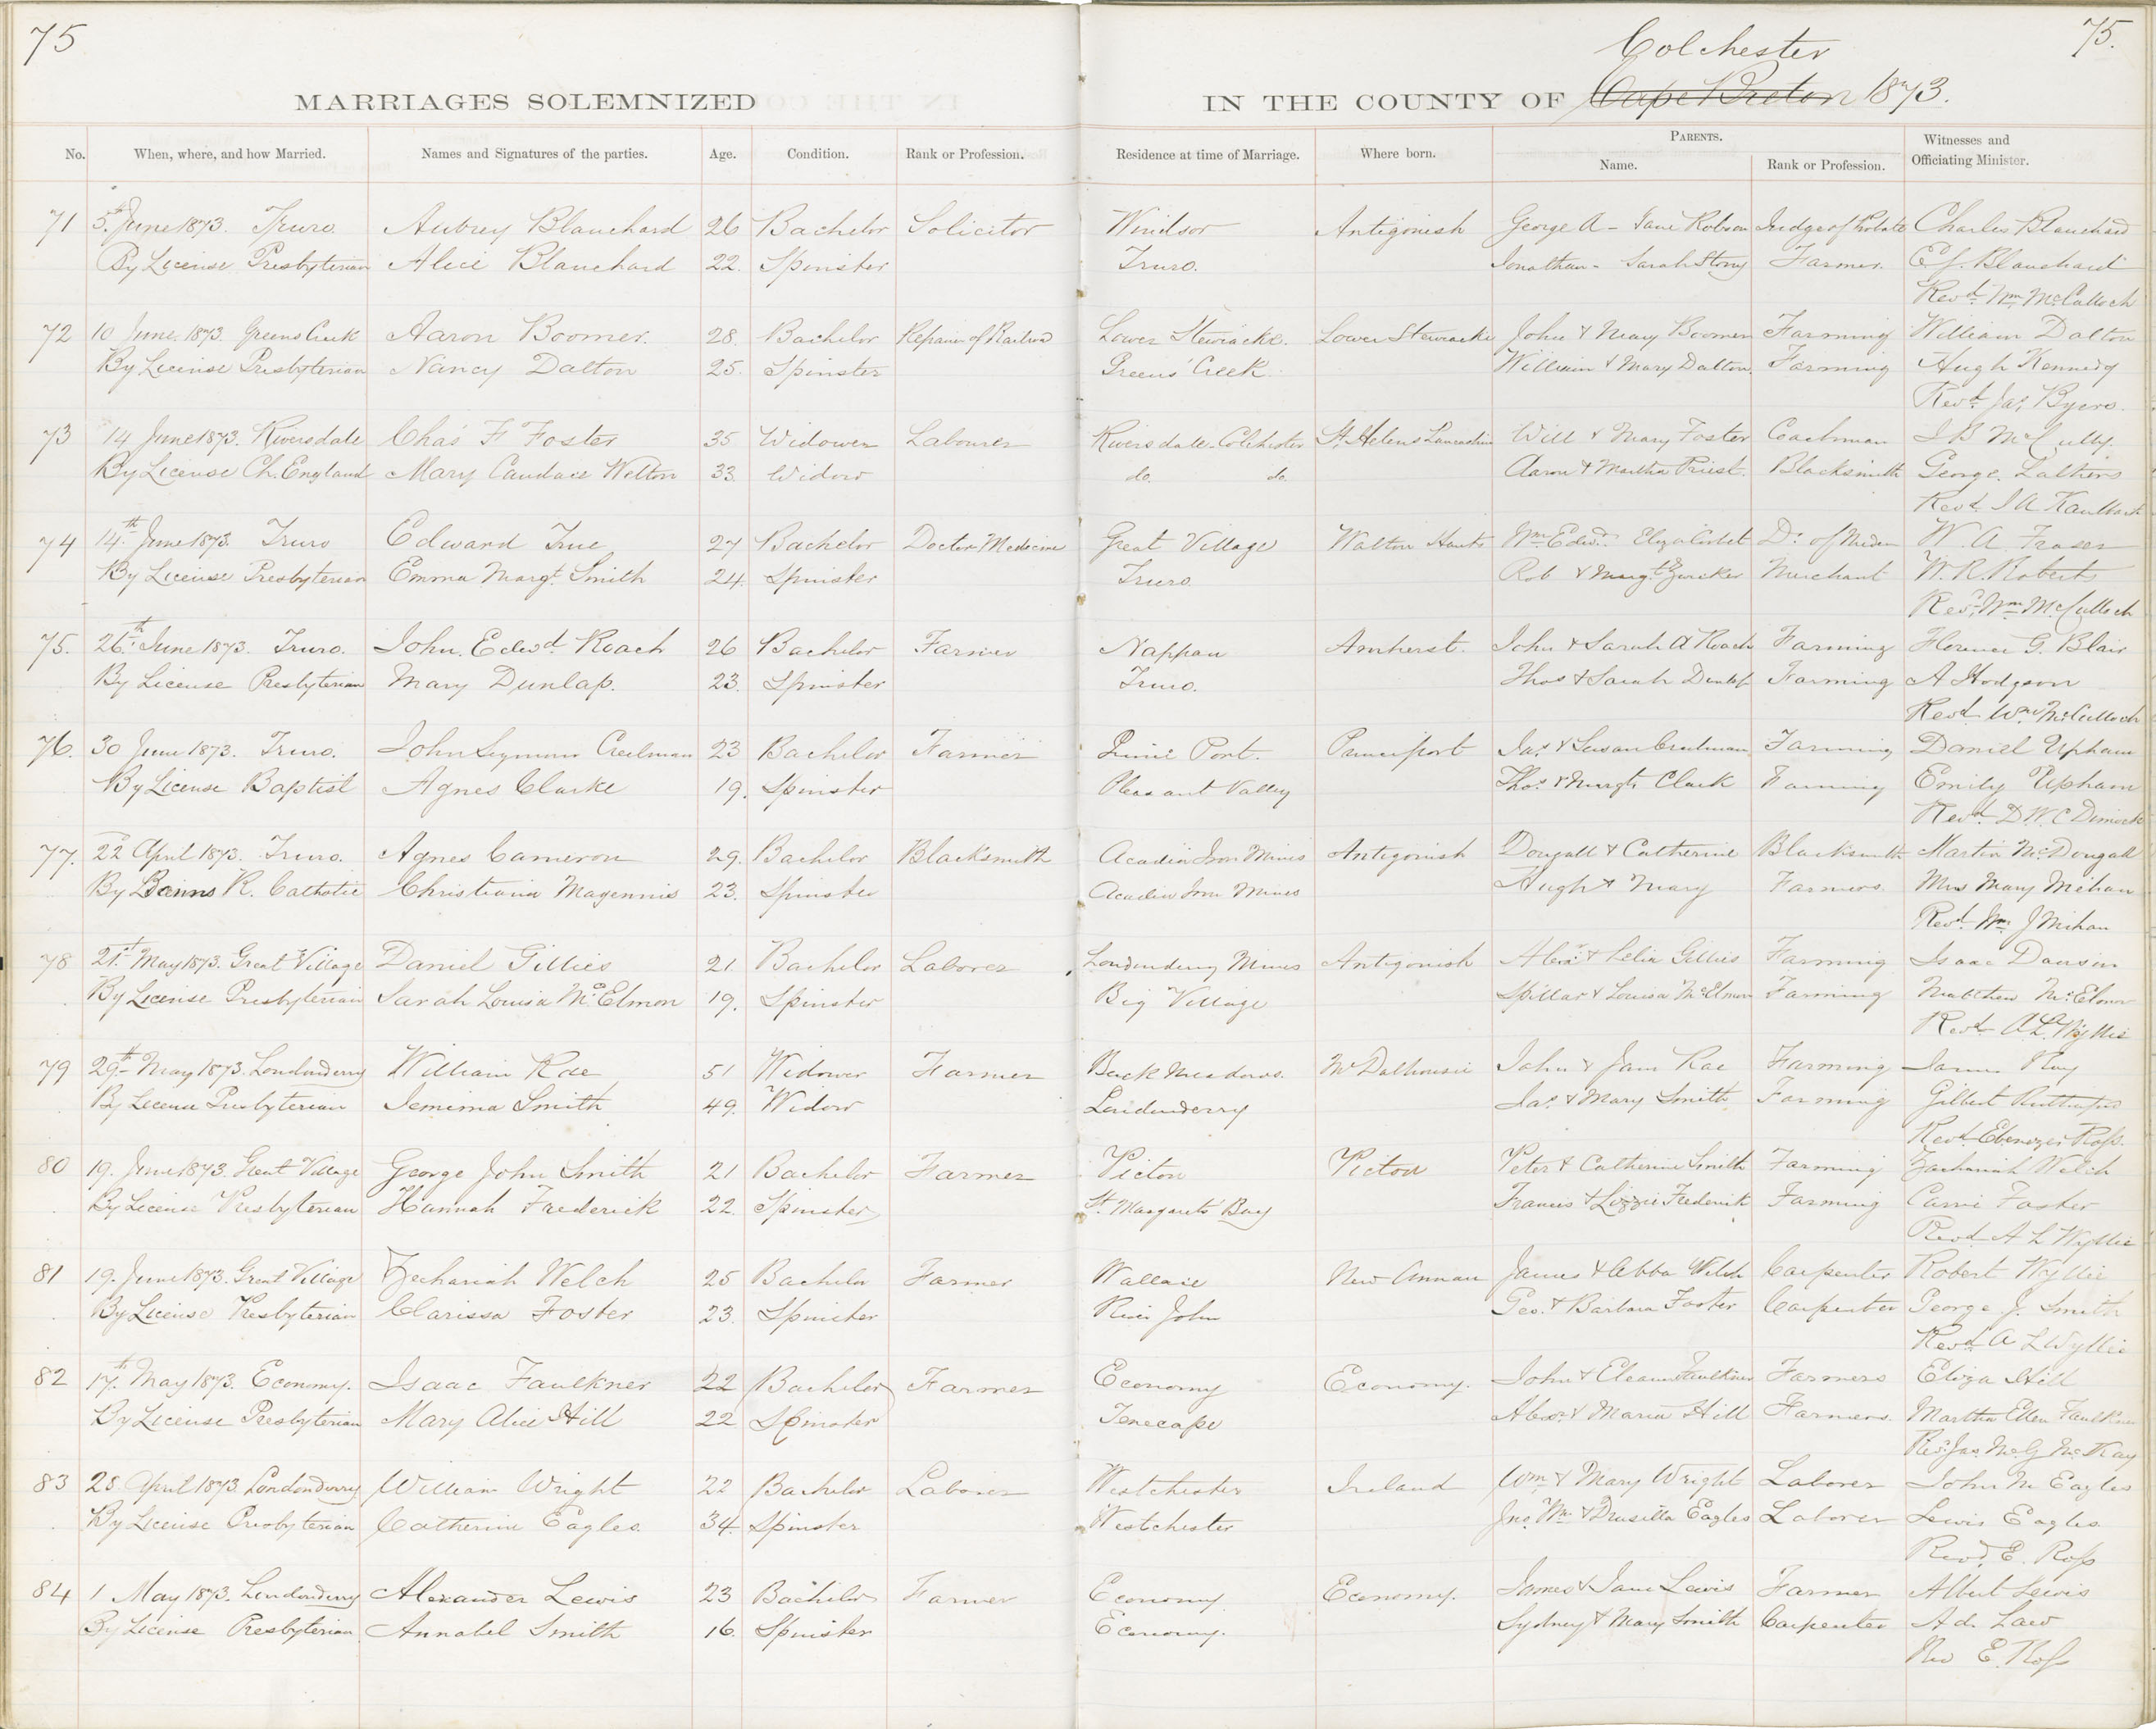 75
75.
Colchester
MARRIAGES SOLEMNIZED IN THE COUNTY OF Cape Breton 1873.
No. When, where, and how Married. Names and Signatures of the parties. Age. Condition. Rank or Profession. Residence at time of Marriage. Where born. PARENTS. Name. Rank or Profession. Witnesses and Officiating Minister.
71 5th June 1873. Truro. Aubrey Blanchard 26 Bachelor Solicitor Windsor Antigonish George A - Jane Robson Judge of Probate Charles Blanchard
By License Presbyterian Alice Blanchard 22. Spinster Truro. Jonathan - Sarah Farmer. Blanchard
Revd. Wm. McCulloch
72 10 June 1873. Greens Creek Aaron Boomer. 28. Bachelor Repairer of Railroad Lower Stewiacke. Lower Stewiacke John & Mary Boomer Farming William Dalton
By License Presbyterian Nancy Dalton 25. Spinster Greens Creek William & Mary Dalton Farming Hugh Kennedy
Revd. Jas. Byers.
73 14 June 1873. Riversdale Chas F Foster 35 Widower Labourer Riversdale - Colchester St. Helens Lancashire Will & Mary Foster Coachman McCully.
By License Ch. England Mary Candace Welton 33. Widow do. do. Aaron & Martha Priest. Blacksmith George Lathers
Revd. J A Kaulbach
74 14th June 1873. Truro Edward True 27 Bachelor Doctor Medicine Great Village Walton Hants Wm. Edwd. Dr. of W. A. Fraser
By License Presbyterian Emma Margt. Smith 24. Spinster Truro. Rob & Margt. Merchant W. R. Roberts
Revd. Wm. McCulloch
75. 26th June 1873. Truro. John. Edwd. Roach 26 Bachelor Farmer Nappan Amherst. John & Sarah A Roach Farming Florence G. Blair
By License Presbyterian Mary Dunlap. 23. Spinster Truro. Thos & Sarah Dunlap Farming A Hodgson
Revd. Wm. McCulloch
76. 30 June 1873. Truro. John Seymour Creelman 23 Bachelor Farmer Port. Jas. & Susan Creelman Farming Daniel Upham
By License Baptist Agnes Clarke 19. Spinster Pleasant Valley Thos. & Margt. Clark Farming Emily Upham
Revd. D. W. C Dimock
77. 22 April 1873. Truro. Agnes Cameron 29. Bachelor Blacksmith Acadia Iron Mines Antigonish Dougall & Catherine Blacksmith Martin McDougall
By Banns R. Catholic Christiania Magennis 23. Spinster Acadia Iron Mines Hugh & Mary Farmers. Mrs Mary Mihan
Revd. Wm. J Mihan
78 21st May 1873. Great Village Daniel Gillies 21. Bachelor Laborer Londonderry Mines Antigonish Alexr. & Gillies Farming Isaac Dawson
By License Presbyterian Sarah Louisa McElmon 19. Spinster Big Village Spillar & Louisa McElmon Farming Matthew McElmon
Revd. A. L. Wyllie
79 29th May 1873. Londonderry William Rae 51 Widower Farmer Back Meadows. Mt Dalhousie John & Jane Rae Farming James Ray
By License Presbyterian Jemima Smith 49. Widow Londonderry Jas. & Mary Smith Farming Gilbert
Revd. Ebenezer Ross.
80 19. June 1873. Great Village George John Smith 21 Bachelor Farmer Pictou Pictou Peter & Catherine Smith Farming Zachariah Welch
By License Presbyterian Hannah Frederick 22. Spinster St. Margarets Bay Francis & Lizzie Frederick Farming Foster
Revd. A L Wyllie
81 19. June 1873. Great Village Zechariah Welch 25 Bachelor Farmer Wallace New Annan James & Abba Welch Carpenter Robert Wyllie
By License Presbyterian Clarissa Foster 23. Spinster River John Geo. & Barbara Foster Carpenter George J. Smith
Revd A L Wyllie
82 17th May 1873. Economy. Isaac Faulkner 22 Bachelor Farmer Economy Economy. John & Eleanor Faulkner Farmers Eliza Hill
By License Presbyterian Mary Alice Hill 22 Spinster Tenecape Alexr. & Maria Hill Farmers. Martha Ellen Faulkner
Revd. Jas. McG McKay
83 28 April 1873. Londonderry William Wright 22 Bachelor Laborer Westchester Ireland Wm & Mary Wright Laborer John M Eagles
By License Presbyterian Catherine Eagles 34. Spinster Westchester Jno. Wm. & Drusilla Eagles Laborer Lewis Eagles.
Revd. E. Ross
84 1 May 1873. Londonderry Alexander Lewis 23 Bachelor Farmer Economy Economy. James & Jane Lewis Farmer Albert Lewis
By License Presbyterian Annabel Smith 16. Spinster Economy. Sydney & Mary Smith Carpenter Law
Rev E. Ross